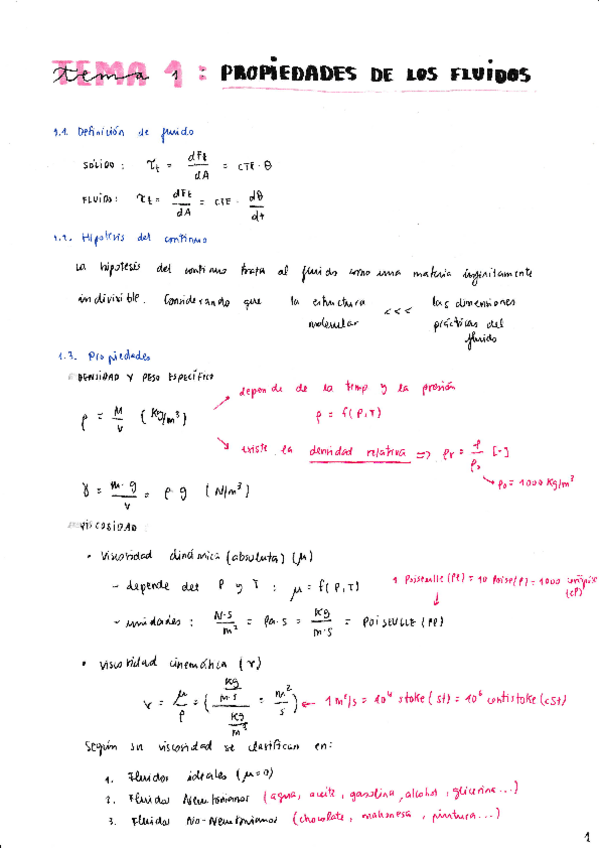 TEMA 1 : PROPIEDADES DE LOS FLUIDOS
1.1. Definición de fluido
SÓLIDO : τt = dFt/dA = CTE · θ
FLUIDO : τt = dFt/dA = CTE · dθ/dt
1.2. Hipótesis del continuo
La hipótesis del continuo trata al fluido como una materia infinitamente
indivisible. Considerando que la estructura molecular <<< las dimensiones prácticas del fluido
1.3. Propiedades
DENSIDAD Y PESO ESPECÍFICO
depende de la temp y la presión
ρ = M/V (Kg/m³)
ρ = f(P,T)
existe la densidad relativa => ρr = ρ/ρ₀ [-]
ρ₀ = 1000 Kg/m³
γ = m·g/V = ρ·g (N/m³)
VISCOSIDAD
• Viscosidad dinámica (absoluta) (μ)
- depende del P y T : μ = f(P,T)
1 Poiseuille (Pl) = 10 Poise (P) = 1000 (cP)
- unidades : N·s/m² = Pa·s = Kg/m·s =
• viscosidad cinemática (ν)
ν = μ/ρ = (Kg/m·s / Kg/m³ = m²/s) ← 1 m²/s = 10⁴ stoke (St) = 10⁶ centistoke (cSt)
Según su viscosidad se clasifican en:
1. Fluidos ideales (μ=0)
2. Fluidos Newtonianos (agua, aceite, gasolina, alcohol, glicerina...)
3. Fluidos No-Newtonianos (chocolate, mahonesa, pintura...)
1